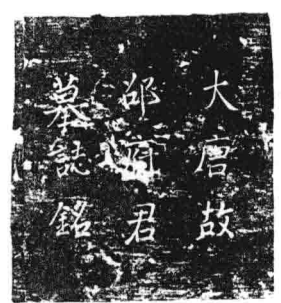 大唐故
邵府君
墓誌銘